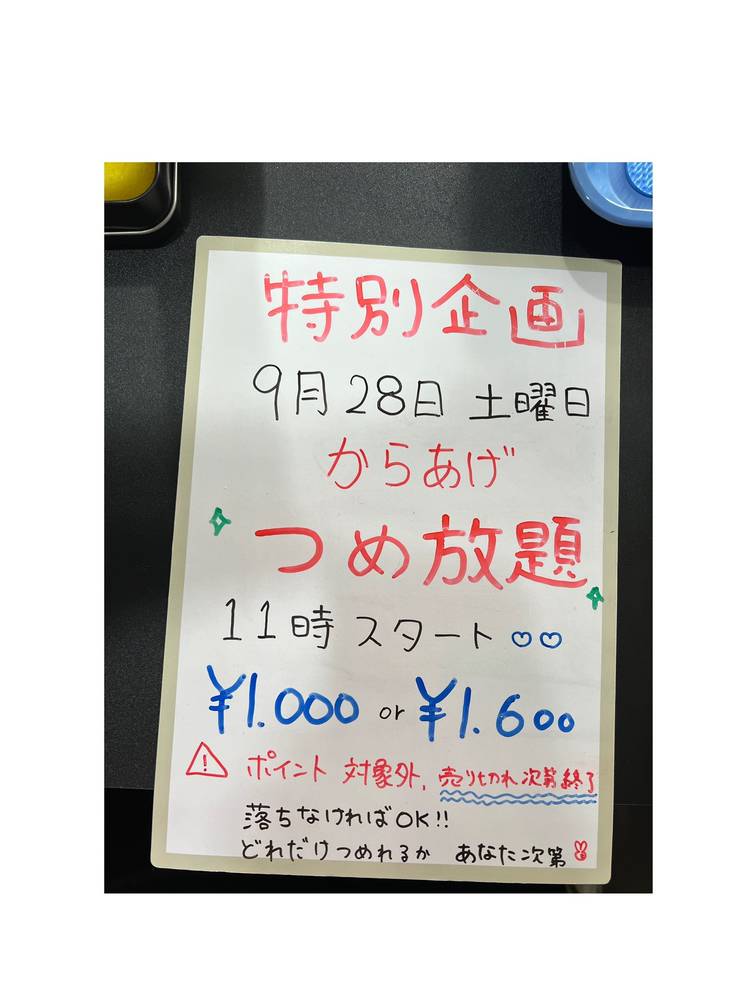 特別企画
9月28日 土曜日
からあげ
つめ放題
11時スタート
¥1.000 or ¥1.600
ポイント 対象外, 売り切れ次第終了
落ちなければOK!!
どれだけつめれるか あなた次第